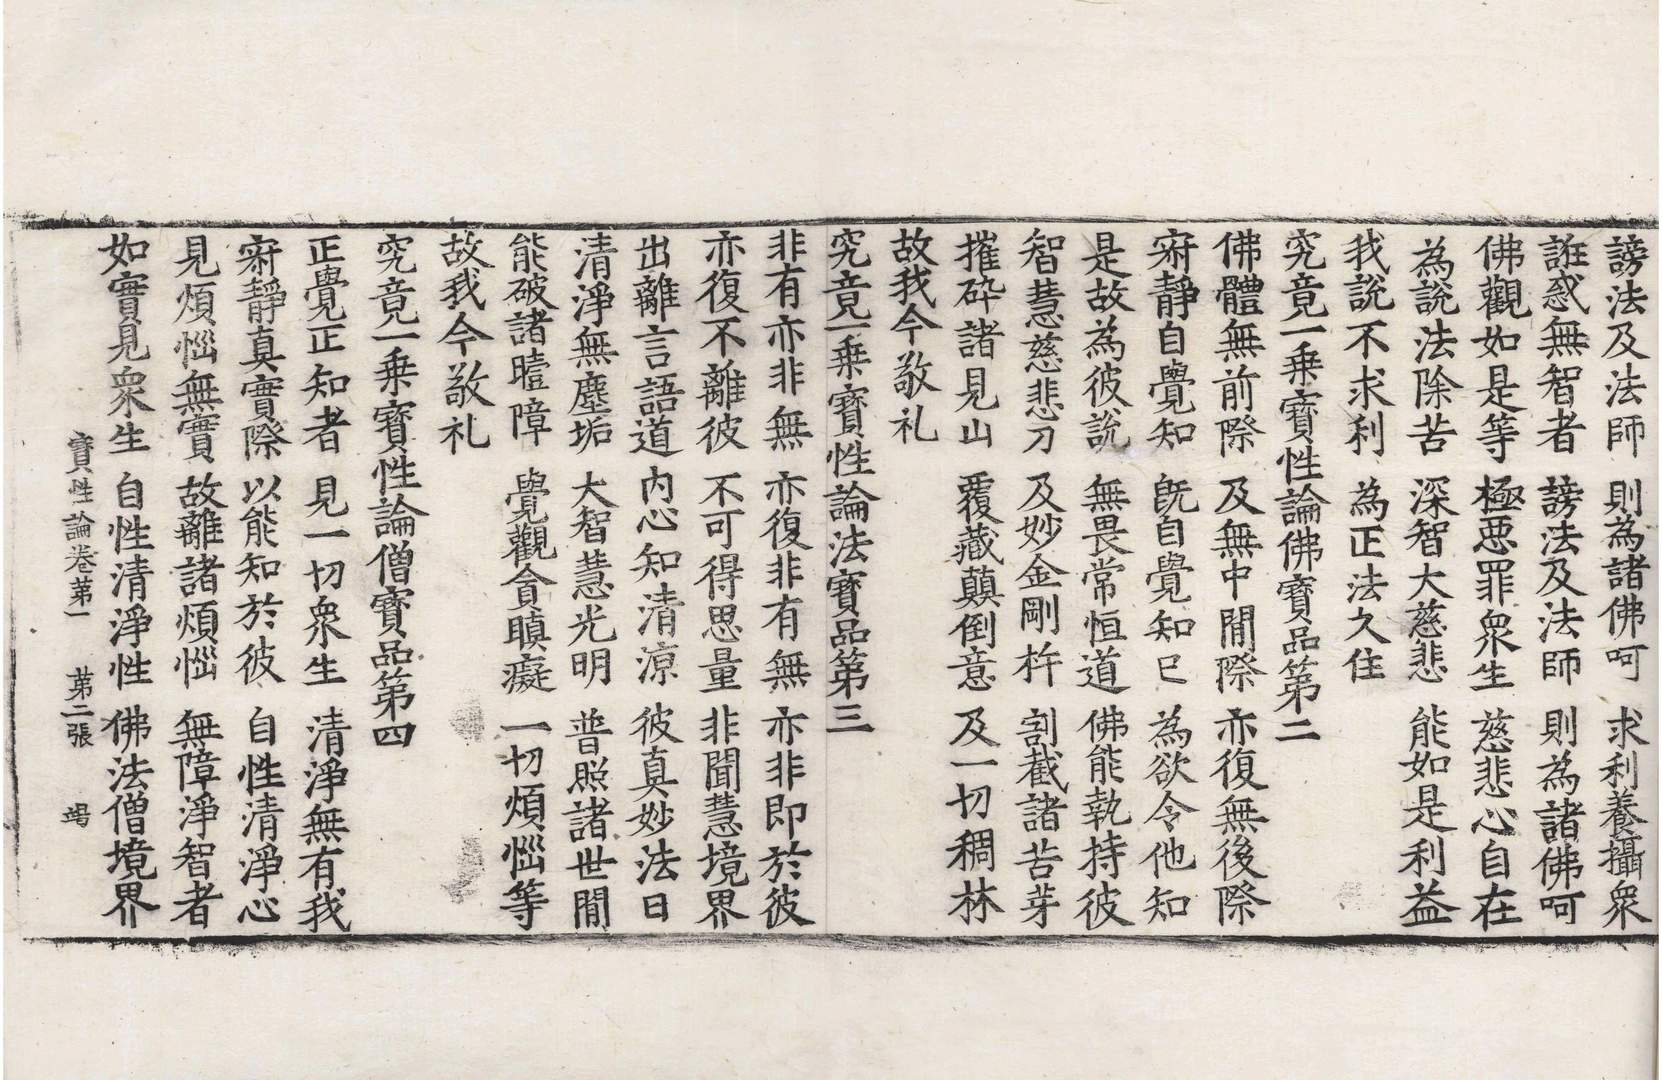 謗法及法師　則為諸佛呵　求利養攝衆
誑惑無智者　謗法及法師　則為諸佛呵
佛觀如是等　極惡罪衆生　慈悲心自在
為說法除苦　深智大慈悲　能如是利益
我說不求利　為正法久住
究竟一乗寳性論佛寳品第二
佛體無前際　及無中閒際　亦復無後際
寂靜自覺知　旣自覺知已　為欲令他知
是故為彼說　無畏常恒道　佛能執持彼
智慧慈悲刀　及妙金剛杵　割截諸苦芽
摧碎諸見山　覆藏顛倒意　及一切稠林
故我今敬礼
究竟一乗寳性論法寳品第三
非有亦非無　亦復非有無　亦非即於彼
亦復不離彼　不可得思量　非聞慧境界
出離言語道　内心知清涼　彼真妙法日
清淨無塵垢　大智慧光明　普照諸世閒
能破諸曀障　覺觀貪瞋癡　一切煩惱等
故我今敬礼
究竟一乗寳性論僧寳品第四
正覺正知者　見一切衆生　清淨無有我
寂靜真實際　以能知於彼　自性清淨心
見煩惱無實　故離諸煩惱　無障淨智者
如實見衆生　自性清淨性　佛法僧境界
寳性論卷第一　第二張　竭